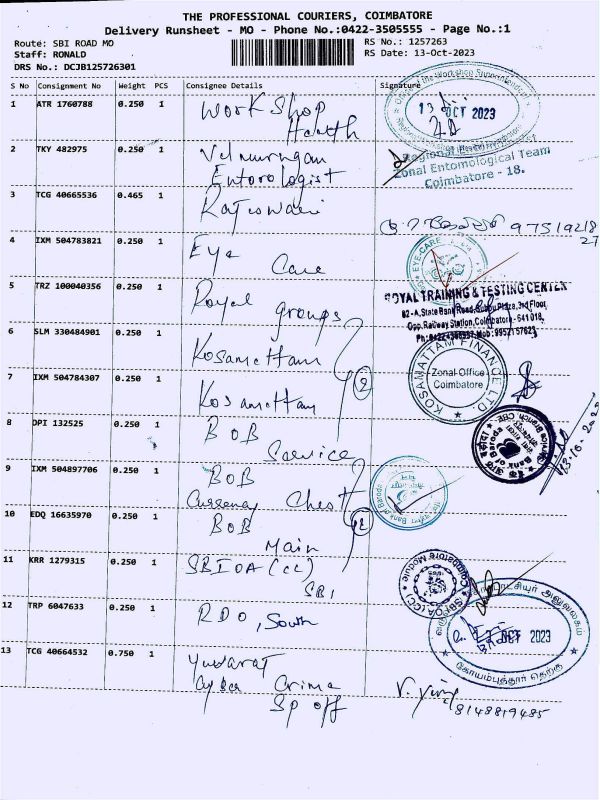 THE PROFESSIONAL COURIERS, COIMBATORE
Delivery Runsheet - MO - Phone No.:0422-3505555 - Page No.:1
Route: SBI ROAD MO
RS No.: 1257263
Staff: RONALD
RS Date: 13-Oct-2023
DRS No.: DCJB125726301
S No Consignment No Weight PCS Consignee Details Signature
1 ATR 1760788 0.250 1 Work Shop
Health
13 OCT 2023
2 TKY 482975 0.250 1 Velmurugan
Entorologist
Zonal Entomological Team
Coimbatore - 18.
3 TCG 40665536 0.465 1 Rajeswari
97519218
27
4 IXM 504783821 0.250 1 Eye
Care
EYE-CARE
5 TRZ 100040356 0.250 1 Royal groups
ROYAL TRAINING & TESTING CENTER
82-A, State Bank Road, Plaza, 3rd Floor,
Opp. Railway Station, Coimbatore - 641 018,
6 SLM 330484901 0.250 1 Kosamattam
KOSAMATTAM FINANCE LTD.
Zonal Office
Coimbatore
7 IXM 504784307 0.250 1 Kosamattam
2
8 DPI 132525 0.250 1 BOB
Service
Bank of Baroda
9 IXM 504897706 0.250 1 BOB
Currency Chest
10 EDQ 16635970 0.250 1 BOB
Main
11 KRR 1279315 0.250 1 SBIOA (CC)
SBI
12 TRP 6047633 0.250 1 RDO, South
OCT 2023
கோயம்புத்தூர் தெற்கு
13 TCG 40664532 0.750 1 Yuvaraj
Cyber Crime
Sp off
8148819485